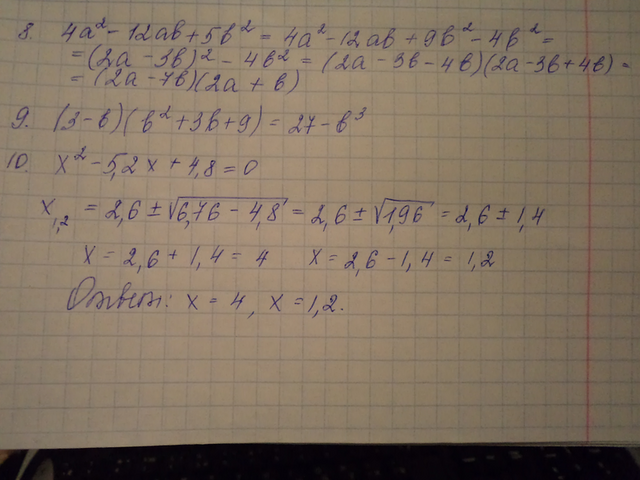 8. 4a² - 12ab + 5b² = 4a² - 12ab + 9b² - 4b² =
= (2a - 3b)² - 4b² = (2a - 3b - 4b)(2a - 3b + 4b) =
= (2a - 7b)(2a + b)
9. (3 - b)(b² + 3b + 9) = 27 - b³
10. x² - 5,2x + 4,8 = 0
x₁,₂ = 2,6 ± √6,76 - 4,8 = 2,6 ± √1,96 = 2,6 ± 1,4
x = 2,6 + 1,4 = 4 x = 2,6 - 1,4 = 1,2
Ответ: x = 4, x = 1,2.